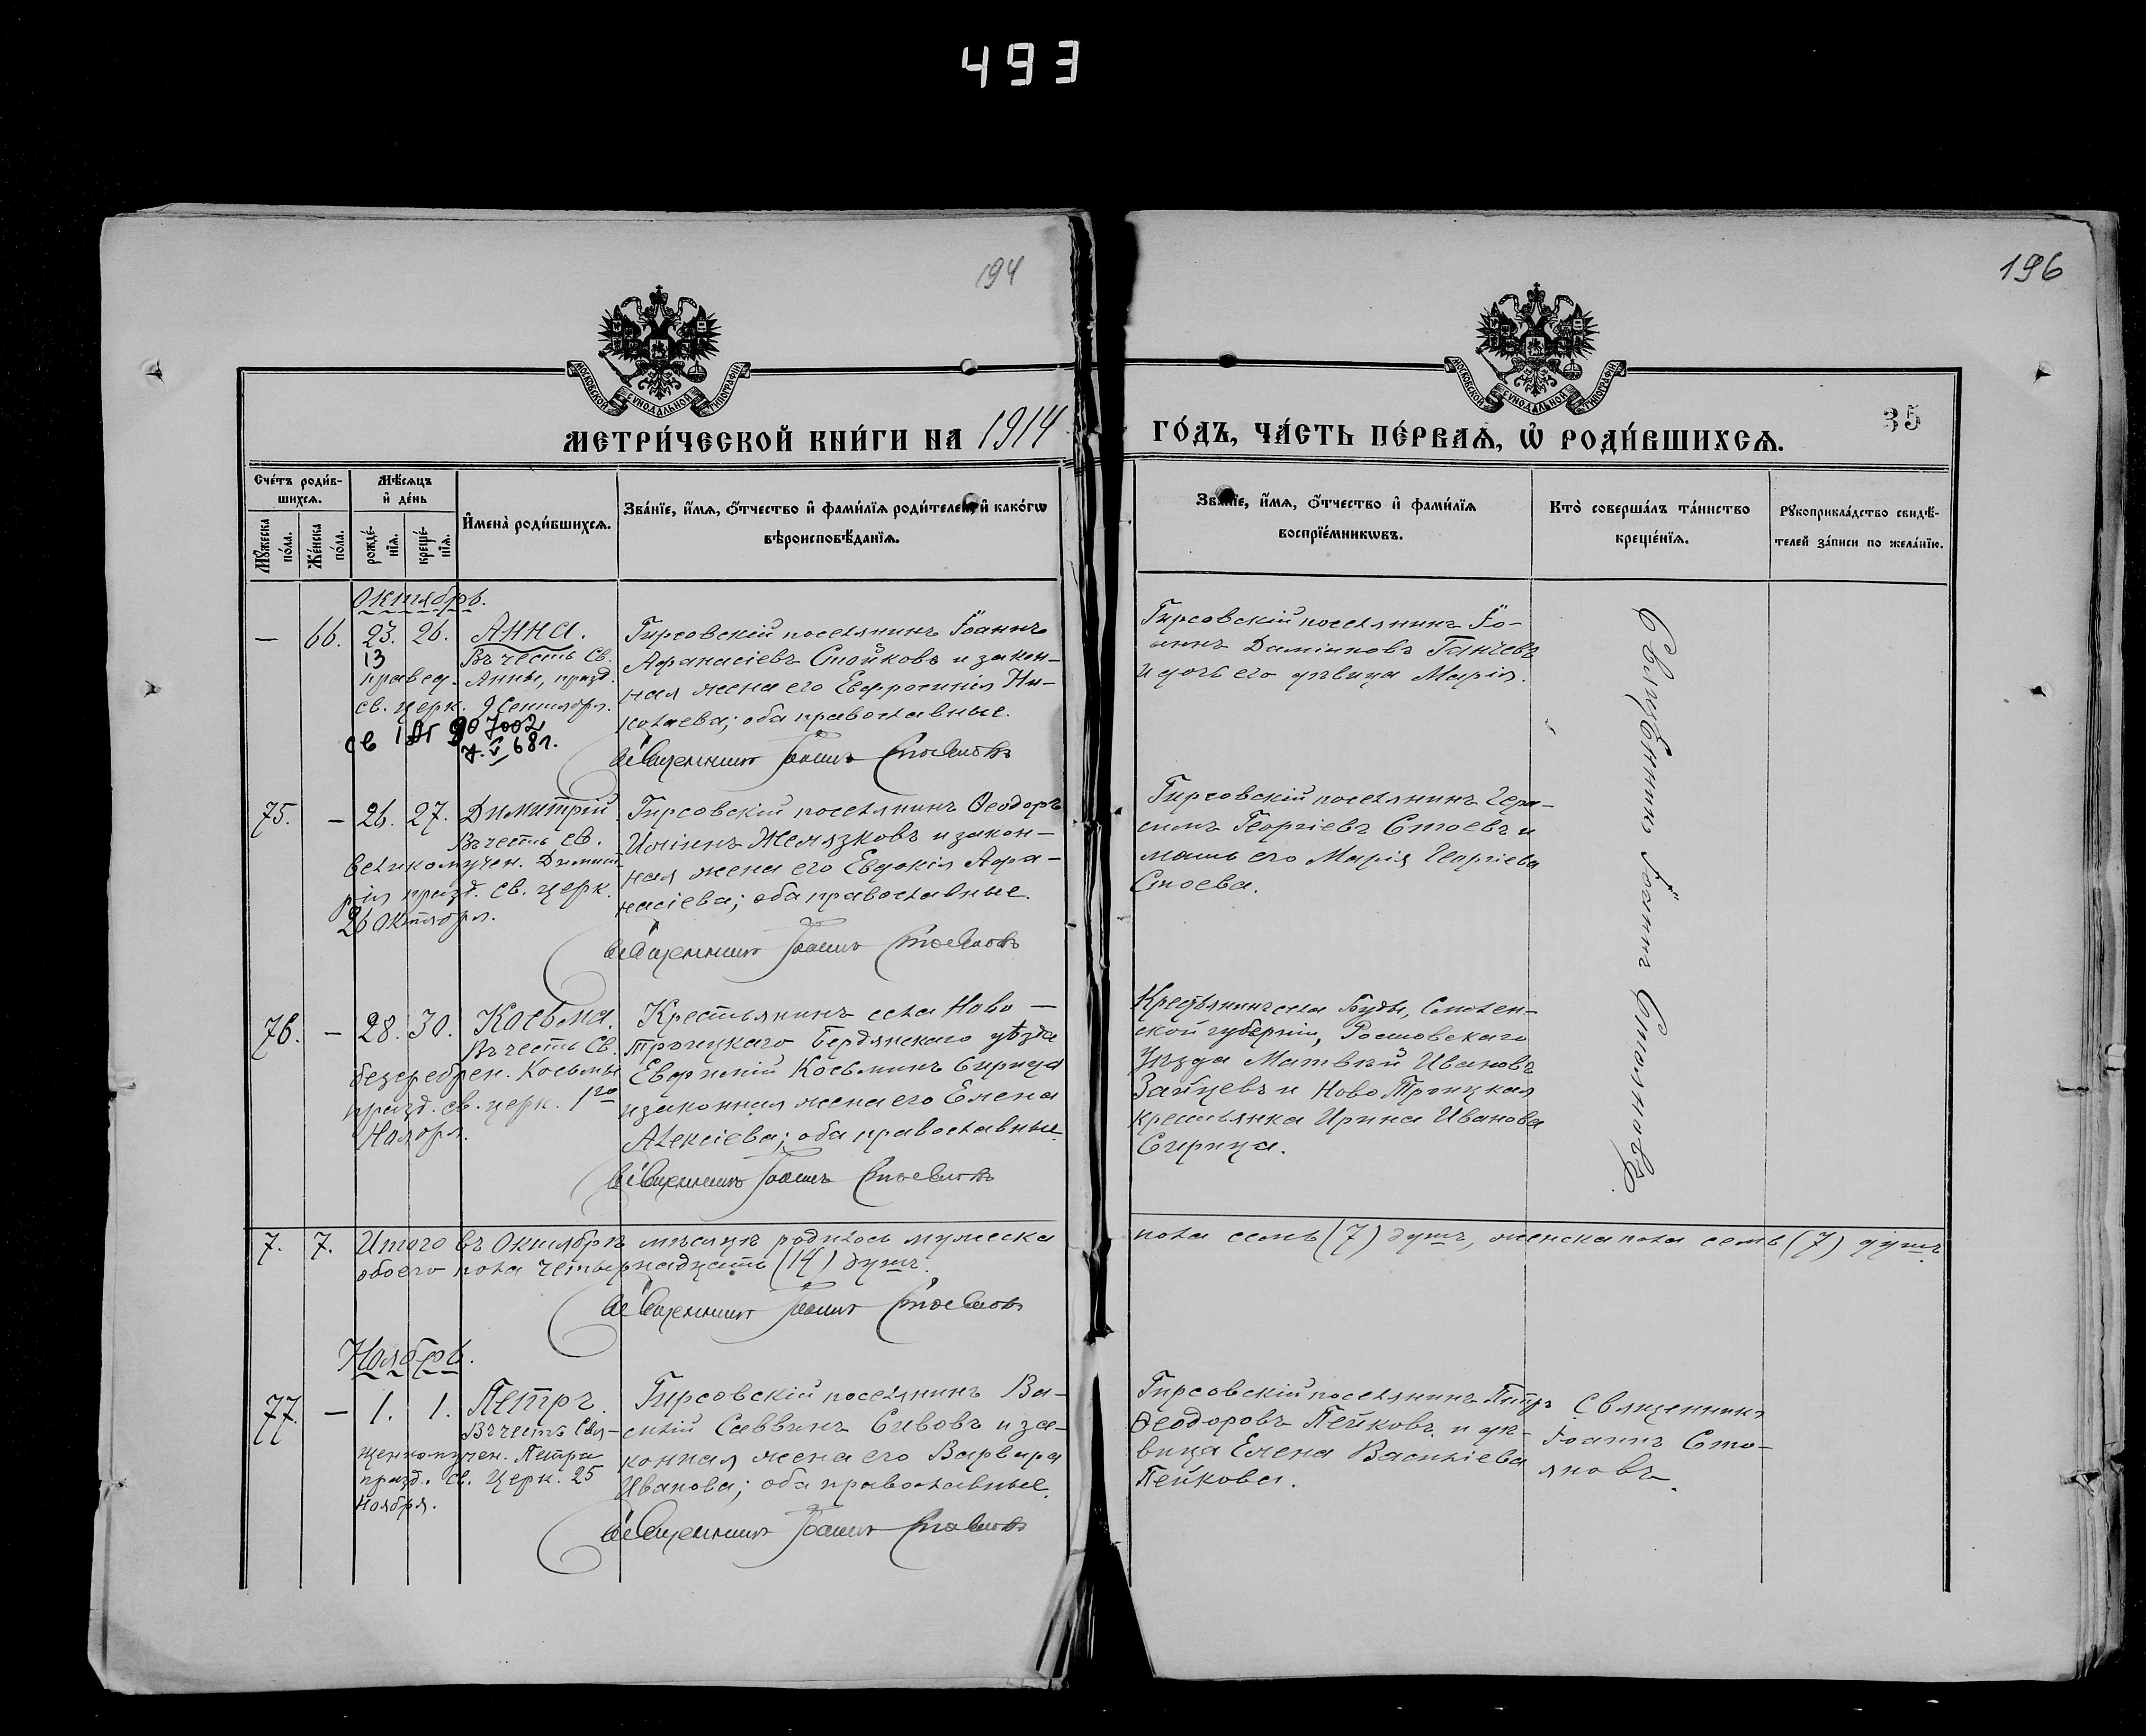 493
194
196
МОСКОВСКОЙ СУНОДАЛЬНОЙ ТИПОГРАФІИ
МОСКОВСКОЙ СУНОДАЛЬНОЙ ТИПОГРАФІИ
МЕТРИ́ЧЕСКОЙ КНИ́ГИ НА 1914
ГО́ДЪ, ЧА́СТЬ ПЕ́РВАѦ, Ѡ҆ РОДИ́ВШИХСѦ.
35
Сче́тъ роди́в-
шихсѧ.
Мѣ́сѧцъ
и҆ де́нь
Мꙋ́жеска
по́ла.
Же́нска
по́ла.
рожде́-
нїѧ.
креще́-
нїѧ.
И҆мена̀ роди́вшихсѧ.
Зва́нїе, и҆́мѧ, ѻ҆́тчество и҆ фами́лїѧ роди́телей, и҆ како́гѡ
вѣроисповѣ́данїѧ.
Зва́нїе, и҆́мѧ, ѻ҆́тчество и҆ фами́лїѧ
воспрїе́мникѡвъ.
Кто̀ соверша́лъ та́инство
креще́нїѧ.
Рꙋкоприкла́дство свидѣ́-
телей за́писи по жела́нїю.
Октябрь.
— 66. 23. 26. Анна.
13
Въ честь Св.
правед. Анны, празд.
св. церк. 9 Сентября.
св 907002
68г.
Гирсовскій поселянинъ Іоаннъ
Афанасіевъ Стойковъ и закон-
ная жена его Евфросинія Ни-
колаева; оба православные.
Священникъ Іоаннъ Стояновъ
Гирсовскій поселянинъ Іо-
аннъ Даміановъ Ганчевъ
и дочь его дѣвица Марія.
Священникъ Іоаннъ Стояновъ.
75. — 26. 27. Димитрій
Въ честь св.
великомучен. Димит-
рія празд. св. церк.
26 Октября.
Гирсовскій поселянинъ Ѳеодоръ
Иліинъ Желязковъ и закон-
ная жена его Евдокія Афа-
насіева; оба православные.
Священникъ Іоаннъ Стояновъ
Гирсовскій поселянинъ Гера-
симъ Георгіевъ Стоевъ и
мать его Марія Георгіева
Стоева.
76. — 28. 30. Косьма.
Въ честь Св.
безсребрен. Косьмы
празд. св. церк. 1го
Ноября.
Крестьянинъ села Ново —
Троицкаго Бердянскаго уѣзда
Евфимій Косьминъ Сирица
и законная жена его Елена
Алексіева; оба православные.
Священникъ Іоаннъ Стояновъ
Крестьянинъ села Буды, Смолен-
ской губерніи, Рославскаго
Уѣзда Матвѣй Ивановъ
Зайцевъ и Ново Троицкая
крестьянка Ирина Иванова
Сирица.
7. 7. Итого въ Октябрѣ мѣсяцѣ родилось мужеска
пола семь (7) душъ, женска пола семь (7) душъ
обоего пола четырнадцать (14) душъ.
Священникъ Іоаннъ Стояновъ
Ноябрь.
77. — 1. 1. Петръ.
Въ честь Свя-
щенномучен. Петра
празд. св. церк. 25
Ноября.
Гирсовскій поселянинъ Ва-
силій Саввинъ Сивовъ и за-
конная жена его Варвара
Иванова; оба православные.
Священникъ Іоаннъ Стояновъ
Гирсовскій поселянинъ Петръ
Ѳеодоровъ Пейковъ и дѣ-
вица Елена Василіева
Пейкова.
Священникъ
Іоаннъ Сто-
яновъ.